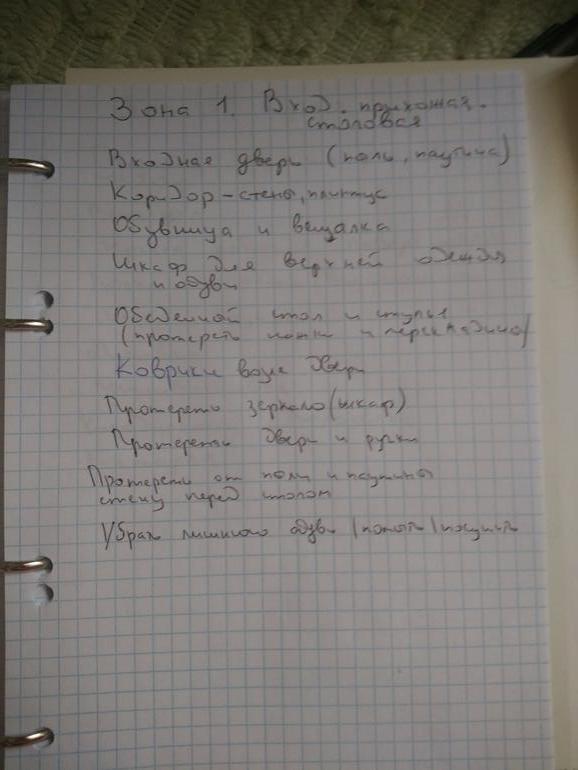 Зона 1. Вход. прихожая.
столовая
Входная дверь (пыль, паутина)
Коридор – стены, плинтус
Обувница и вешалка
Шкаф для верхней одежды
и обуви
Обеденной стол и стулья
(протереть ножки и перекладины)
Коврики возле двери
Протереть зеркало (шкаф)
Протереть двери и ручки
Протереть от пыли и паутины
стену перед столом
Убрать лишнюю обувь